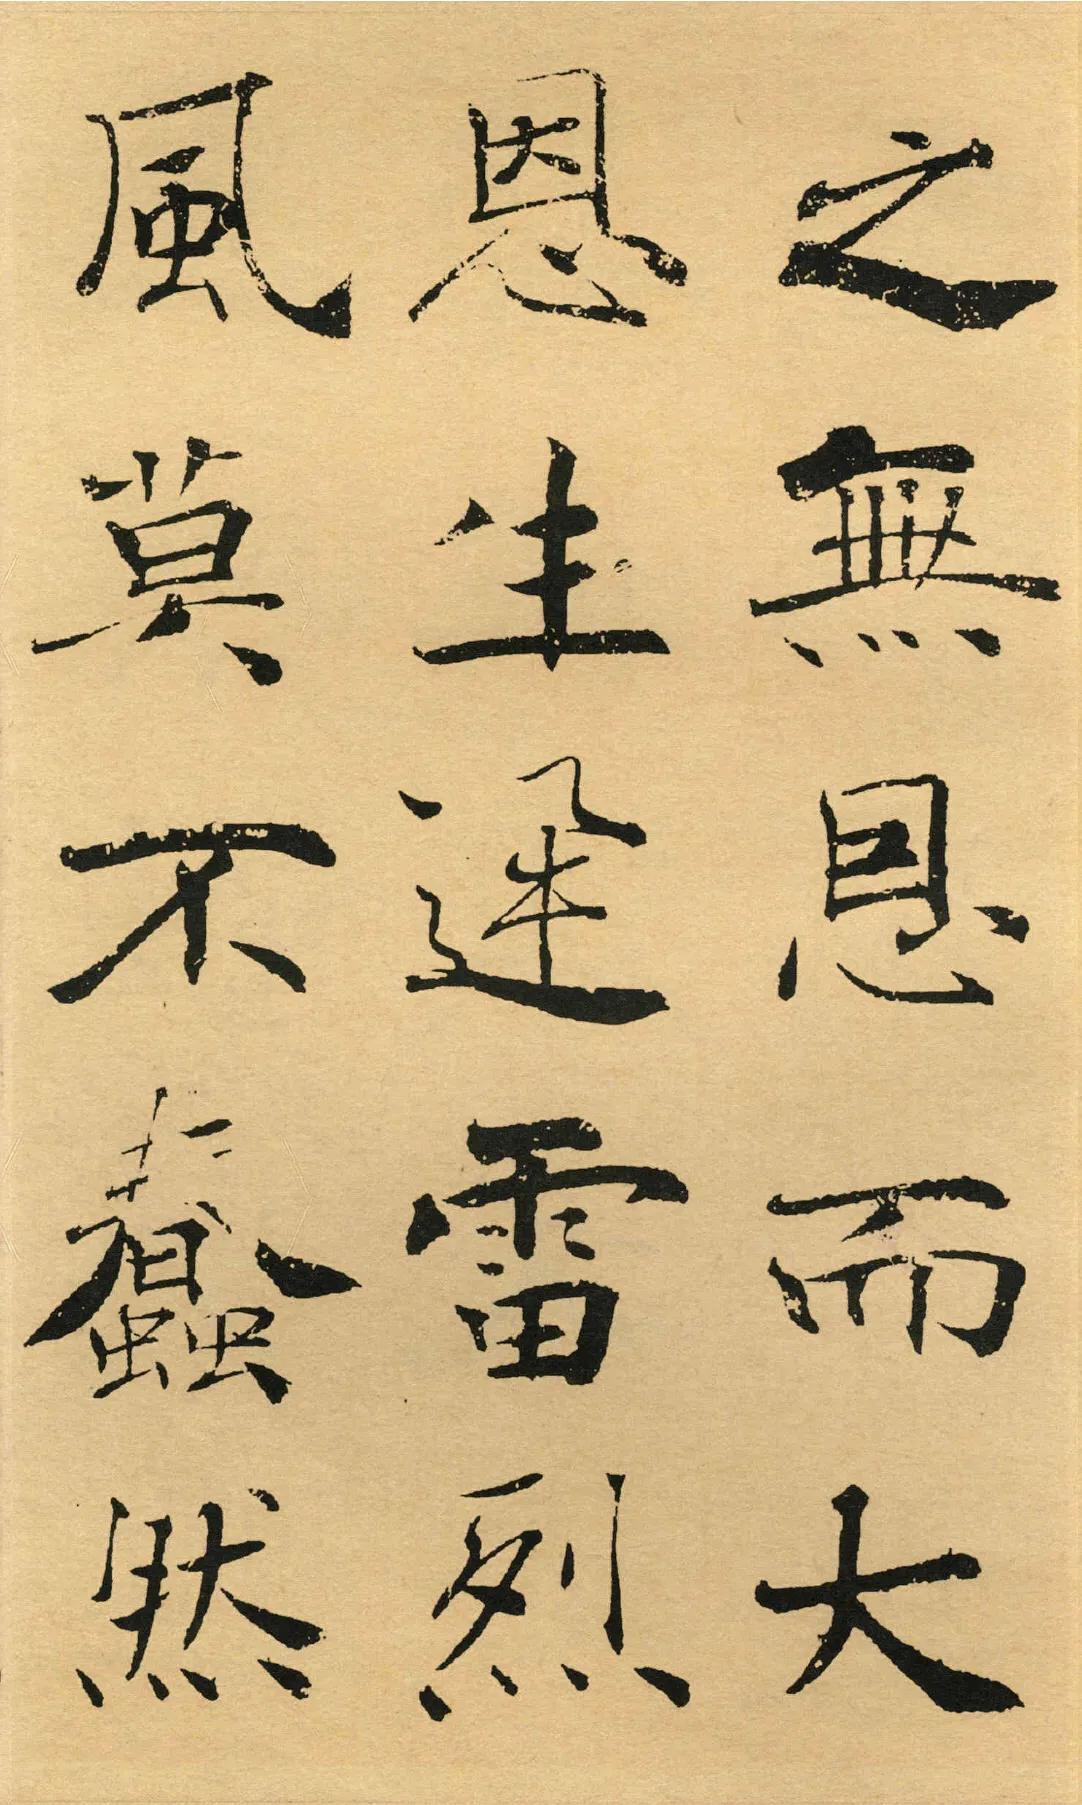 之無恩而大
恩生迅雷烈
風莫不蠢然